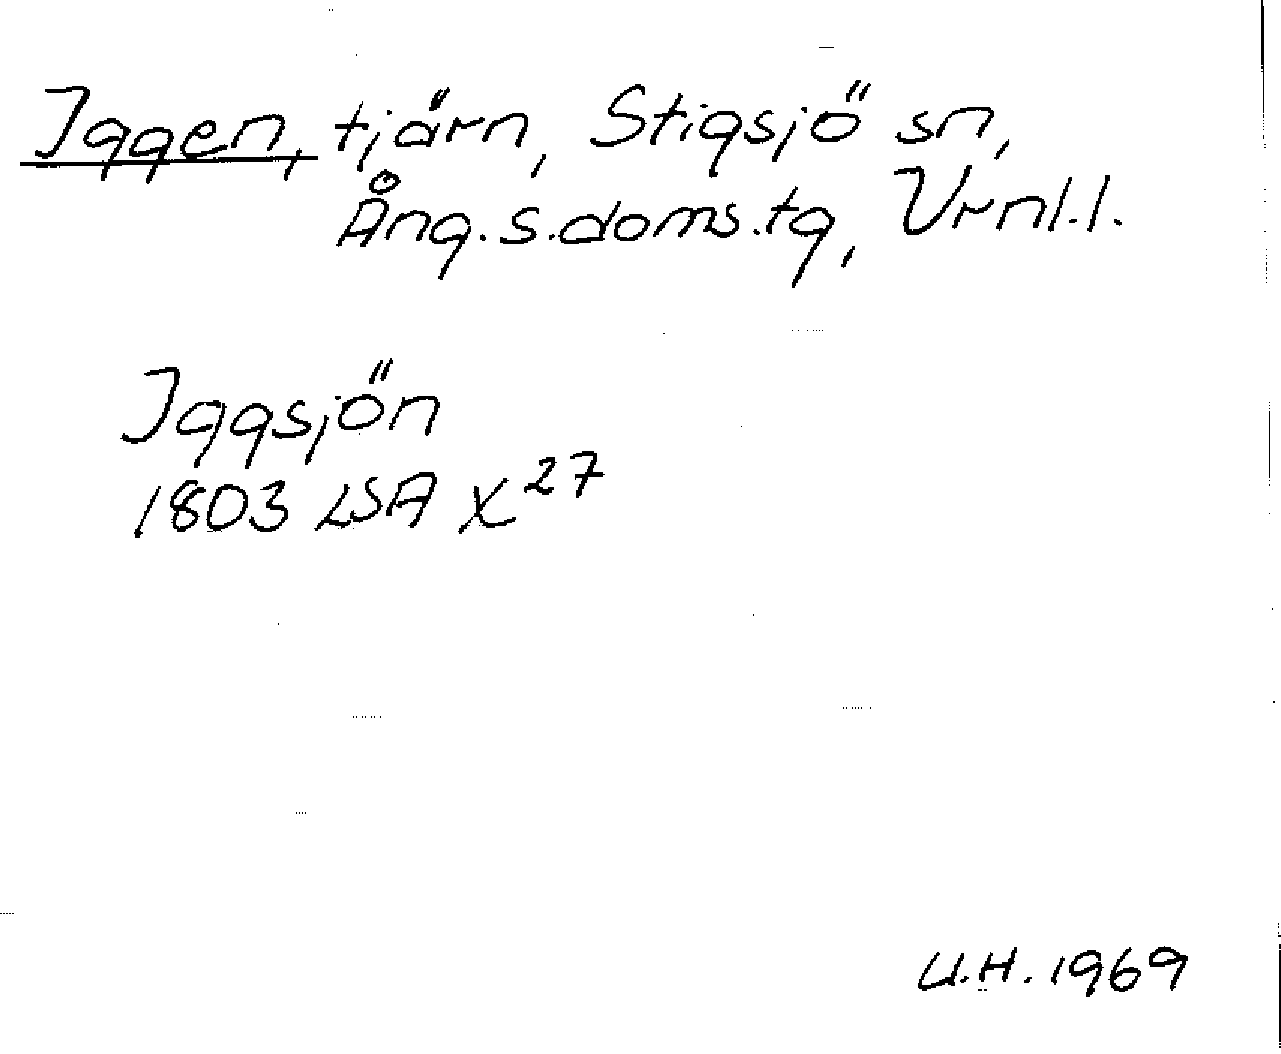 Iggen, tjärn, Stigsjö sn,
Ång.s.doms.tg, Vrnl.l.
Iggsjön
1803 LSA X 27
U.H. 1969